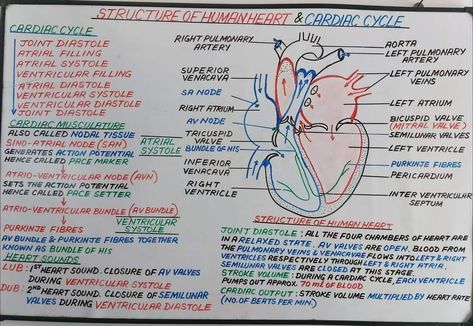 STRUCTURE OF HUMAN HEART & CARDIAC CYCLE
CARDIAC CYCLE
JOINT DIASTOLE
ATRIAL FILLING
ATRIAL SYSTOLE
VENTRICULAR FILLING
ATRIAL DIASTOLE
VENTRICULAR SYSTOLE
VENTRICULAR DIASTOLE
JOINT DIASTOLE
CARDIAC MUSCULATURE
ALSO CALLED NODAL TISSUE
SINO-ATRIAL NODE (SAN)
GENERATES ACTION POTENTIAL
HENCE CALLED PACE MAKER
ATRIAL
SYSTOLE
ATRIO-VENTRICULAR NODE (AVN)
SETS THE ACTION POTENTIAL
HENCE CALLED PACE SETTER
ATRIO-VENTRICULAR BUNDLE (AV BUNDLE)
VENTRICULAR
SYSTOLE
PURKINJE FIBRES
AV BUNDLE & PURKINJE FIBRES TOGETHER
KNOWN AS BUNDLE OF HIS
HEART SOUNDS
LUB: 1ST HEART SOUND. CLOSURE OF AV VALVES
DURING VENTRICULAR SYSTOLE
DUB: 2ND HEART SOUND. CLOSURE OF SEMILUNAR
VALVES DURING VENTRICULAR DIASTOLE
RIGHT PULMONARY
ARTERY
SUPERIOR
VENACAVA
SA NODE
RIGHT ATRIUM
AV NODE
TRICUSPID
VALVE
BUNDLE OF HIS
INFERIOR
VENACAVA
RIGHT
VENTRICLE
AORTA
LEFT PULMONARY
ARTERY
LEFT PULMONARY
VEINS
LEFT ATRIUM
BICUSPID VALVE
(MITRAL VALVE)
SEMILUNAR VALVES
LEFT VENTRICLE
PURKINJE FIBRES
PERICARDIUM
INTER VENTRICULAR
SEPTUM
STRUCTURE OF HUMAN HEART
JOINT DIASTOLE: ALL THE FOUR CHAMBERS OF HEART ARE
IN A RELAXED STATE. AV VALVES ARE OPEN. BLOOD FROM
THE PULMONARY VEINS & VENACAVA FLOWS INTO LEFT & RIGHT
VENTRICLES RESPECTIVELY THROUGH LEFT & RIGHT ATRIA.
SEMILUNAR VALVES ARE CLOSED AT THIS STAGE.
STROKE VOLUME: DURING A CARDIAC CYCLE, EACH VENTRICLE
PUMPS OUT APPROX. 70 ml OF BLOOD
CARDIAC OUTPUT: STROKE VOLUME MULTIPLIED BY HEART RATE
(NO. OF BEATS PER MIN.)